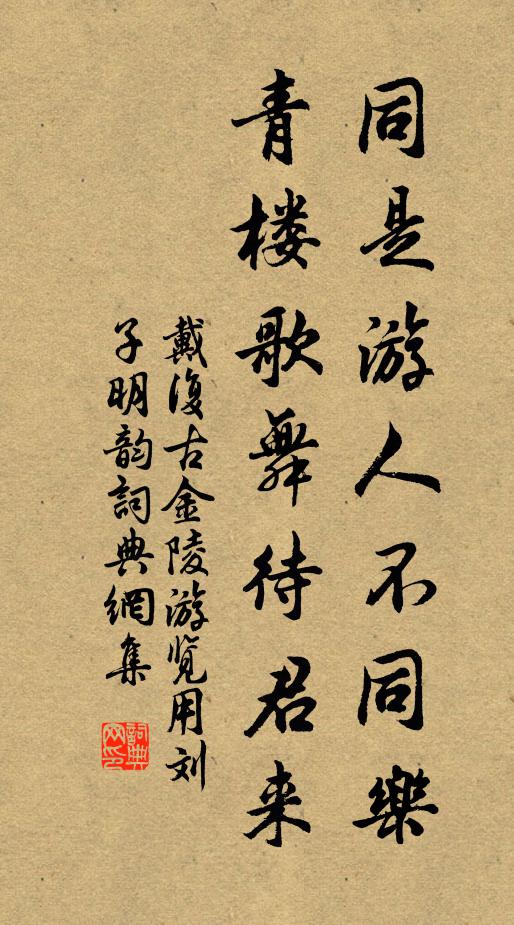 同是游人不同樂
青楼歌舞待君来
戴復古金陵游览用刘
子明韵詞典網集
詞典
网印